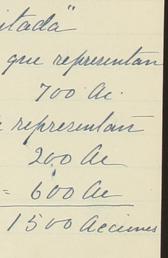 itada"
que representan
700 Ac.
representan
200 Ac
= 600 Ac
1500 Acciones